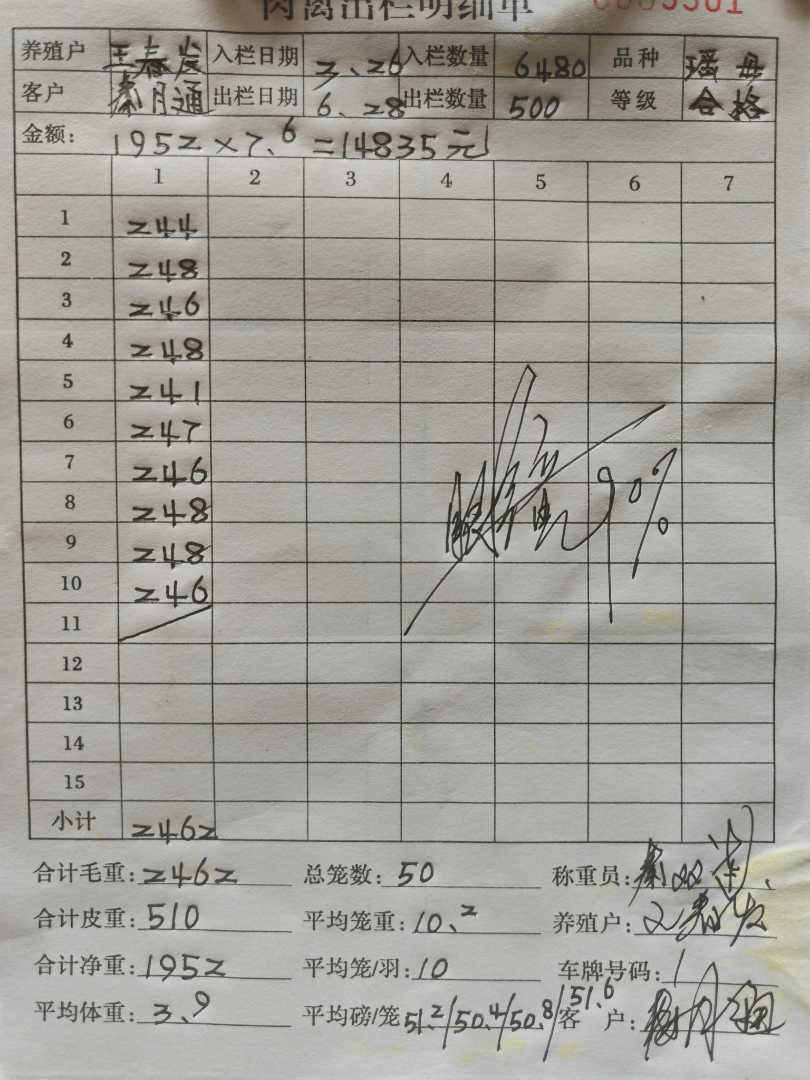 肉禽出栏明细单 0009501
养殖户 王春发 入栏日期 3、26 入栏数量 6480 品种 瑶母
客户 秦月通 出栏日期 6、28 出栏数量 500 等级 合格
金额: 1952×7、6=14835元
1 2 3 4 5 6 7
1 244
2 248
3 246
4 248
5 241
6 247
7 246
8 248
9 248
10 246
11
12
13
14
15
小计 2462
90%
合计毛重:2462 总笼数:50 称重员:
合计皮重:510 平均笼重:10、2 养殖户:王春发
合计净重:1952 平均笼/羽:10 车牌号码:1
平均体重:3、9 平均磅/笼 51、2/50、4/50、8/51、6 客户: